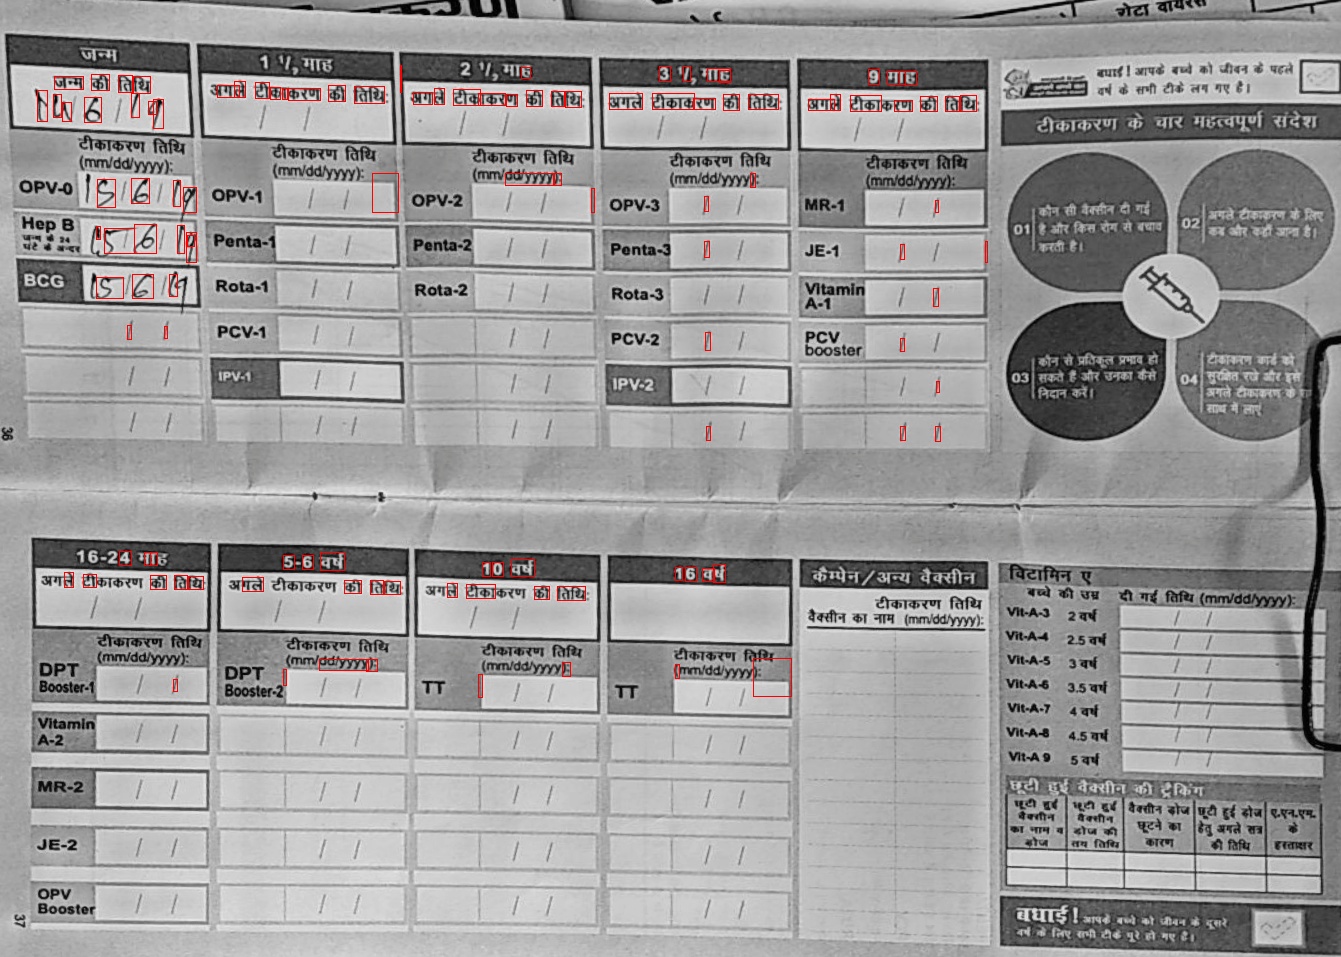 गेटा वायरस
जन्म
जन्म की तिथि
14/6/19
टीकाकरण तिथि
(mm/dd/yyyy):
OPV-0 15/6/19
Hep B 15/6/19
जन्म के 24
घंटे के अन्दर
BCG 15/6/19
1 ½ माह
अगले टीकाकरण की तिथि:
/ /
टीकाकरण तिथि
(mm/dd/yyyy):
OPV-1 / /
Penta-1 / /
Rota-1 / /
PCV-1 / /
IPV-1 / /
2 ½ माह
अगले टीकाकरण की तिथि:
/ /
टीकाकरण तिथि
(mm/dd/yyyy):
OPV-2 / /
Penta-2 / /
Rota-2 / /
3 ½ माह
अगले टीकाकरण की तिथि:
/ /
टीकाकरण तिथि
(mm/dd/yyyy):
OPV-3 / /
Penta-3 / /
Rota-3 / /
PCV-2 / /
IPV-2 / /
9 माह
अगले टीकाकरण की तिथि:
/ /
टीकाकरण तिथि
(mm/dd/yyyy):
MR-1 / /
JE-1 / /
Vitamin
A-1 / /
PCV
booster / /
बधाई! आपके बच्चे को जीवन के पहले
वर्ष के सभी टीके लग गए है।
टीकाकरण के चार महत्वपूर्ण संदेश
01 कौन सी वैक्सीन दी गई
है और किस रोग से बचाव
करती है।
02 अगले टीकाकरण के लिए
कब और कहाँ आना है।
03 कौन से प्रतिकूल प्रभाव हो
सकते हैं और उनका कैसे
निदान करें।
04 टीकाकरण कार्ड को
सुरक्षित रखे और इसे
अगले टीकाकरण के
साथ में लाएं
36
16-24 माह
अगले टीकाकरण की तिथि:
/ /
टीकाकरण तिथि
(mm/dd/yyyy):
DPT
Booster-1 / /
Vitamin
A-2 / /
MR-2 / /
JE-2 / /
OPV
Booster / /
5-6 वर्ष
अगले टीकाकरण की तिथि:
/ /
टीकाकरण तिथि
(mm/dd/yyyy):
DPT
Booster-2 / /
10 वर्ष
अगले टीकाकरण की तिथि:
/ /
टीकाकरण तिथि
(mm/dd/yyyy):
TT / /
16 वर्ष
टीकाकरण तिथि
(mm/dd/yyyy):
TT / /
कैम्पेन/अन्य वैक्सीन
टीकाकरण तिथि
वैक्सीन का नाम (mm/dd/yyyy):
विटामिन ए
बच्चे की उम्र दी गई तिथि (mm/dd/yyyy):
Vit-A-3 2 वर्ष / /
Vit-A-4 2.5 वर्ष / /
Vit-A-5 3 वर्ष / /
Vit-A-6 3.5 वर्ष / /
Vit-A-7 4 वर्ष / /
Vit-A-8 4.5 वर्ष / /
Vit-A 9 5 वर्ष / /
छूटी हुई वैक्सीन की ट्रैकिंग
छूटी हुई वैक्सीन का नाम व डोज
छूटी हुई वैक्सीन डोज की तय तिथि
वैक्सीन डोज छूटने का कारण
छूटी हुई डोज हेतु अगले सत्र की तिथि
ए.एन.एम. के हस्ताक्षर
बधाई! आपके बच्चे को जीवन के दूसरे
वर्ष के लिए सभी टीके पूरे हो गए है।
37